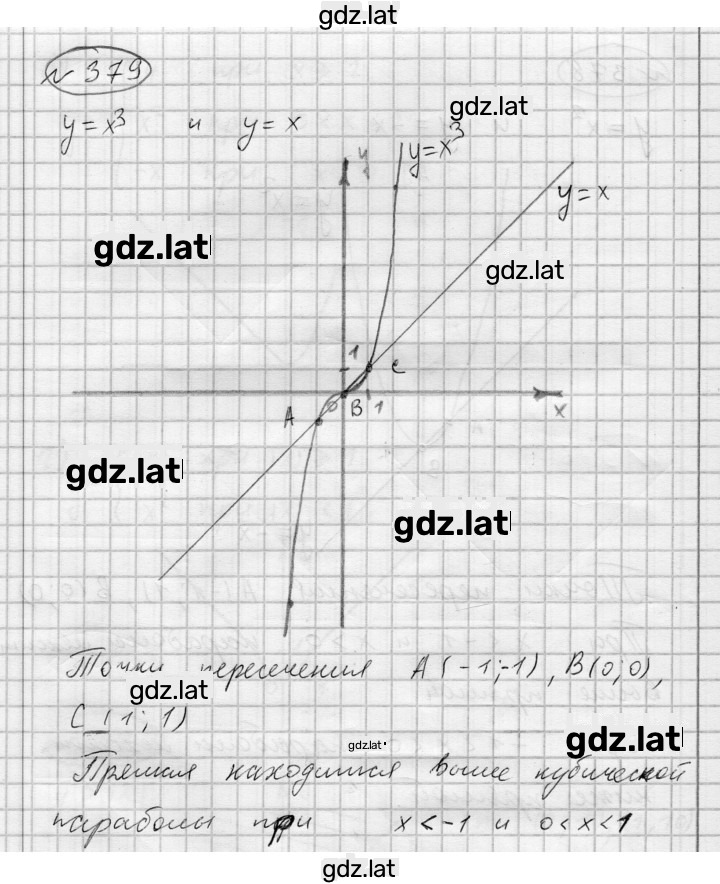 gdz.lat
№ 379
y = x³ и y = x
gdz.lat
y
y=x³
y = x
gdz.lat
gdz.lat
1
C
0
B
1
x
A
gdz.lat
gdz.lat
Точки пересечения A(-1;-1), B(0;0),
gdz.lat
C(1;1)
gdz.lat
gdz.lat
Прямая находится выше кубической
параболы при x<-1 и 0<x<1
gdz.lat